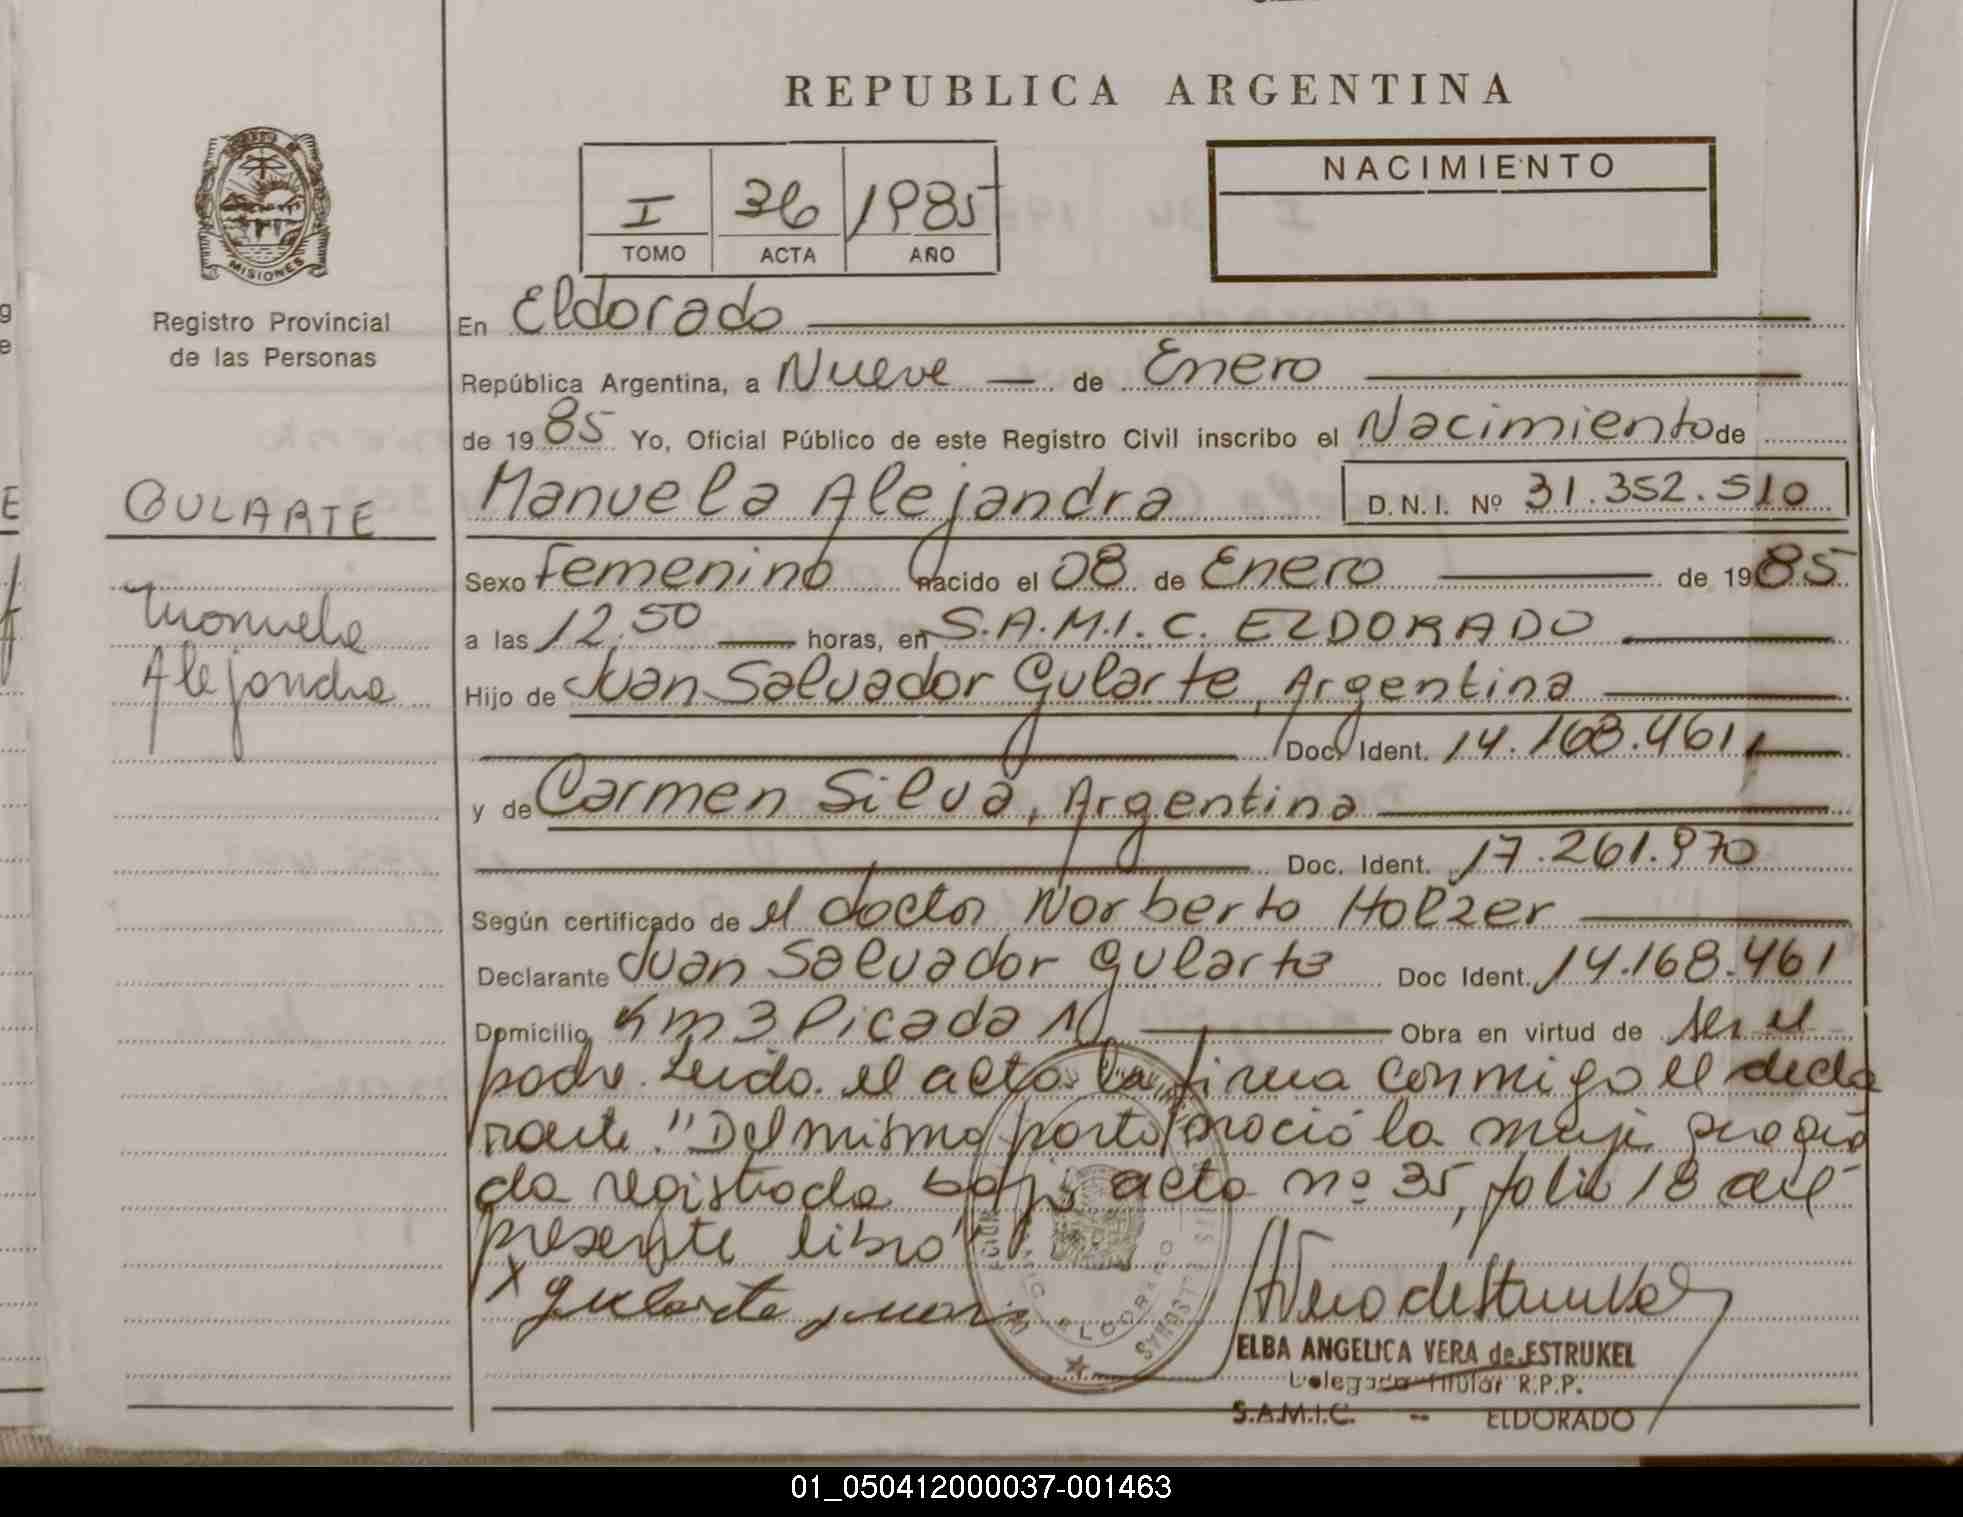 REPUBLICA ARGENTINA
MISIONES
Registro Provincial
de las Personas
I 36 1985
TOMO ACTA AÑO
NACIMIENTO
En Eldorado
República Argentina, a Nueve de Enero
de 1985 Yo, Oficial Público de este Registro Civil inscribo el Nacimiento de
GULARTE
Manuela Alejandra D.N.I. Nº 31.352.510
Manuela
Alejandra
Sexo Femenino nacido el 08 de Enero de 1985
a las 12.50 horas, en S.A.M.I.C. ELDORADO
Hijo de Juan Salvador Gularte, Argentina
Doc. Ident. 14.168.461,
y de Carmen Silva, Argentina
Doc. Ident. 17.261.970
Según certificado de el doctor Norberto Holzer
Declarante Juan Salvador Gularte Doc Ident. 14.168.461
Domicilio Km 3 Picada 10 Obra en virtud de ser el
padre. Leido el acta la firma conmigo el decla
rante. "Del mismo parto nació la
da registrada bajo acta nº 35, folio 18 del
presente libro"
x Gularte Juan
ELDORADO
ELBA ANGELICA VERA de ESTRUKEL
Delegada Titular R.P.P.
S.A.M.I.C. -- ELDORADO
01_050412000037-001463